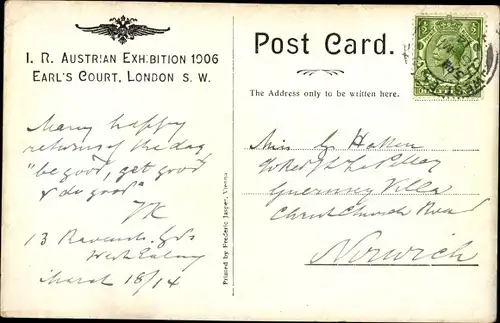 I. R. Austrian Exhibition 1906
Earl's Court, London S. W.
Many happy
returns of the day
"be good, get good
& do good"
13
West Ealing
March 18/14
Printed by Frederic Jasper, Vienna
Post Card.
The Address only to be written here.
Miss G
Guernsey Villa
Christ Church Road
Norwich